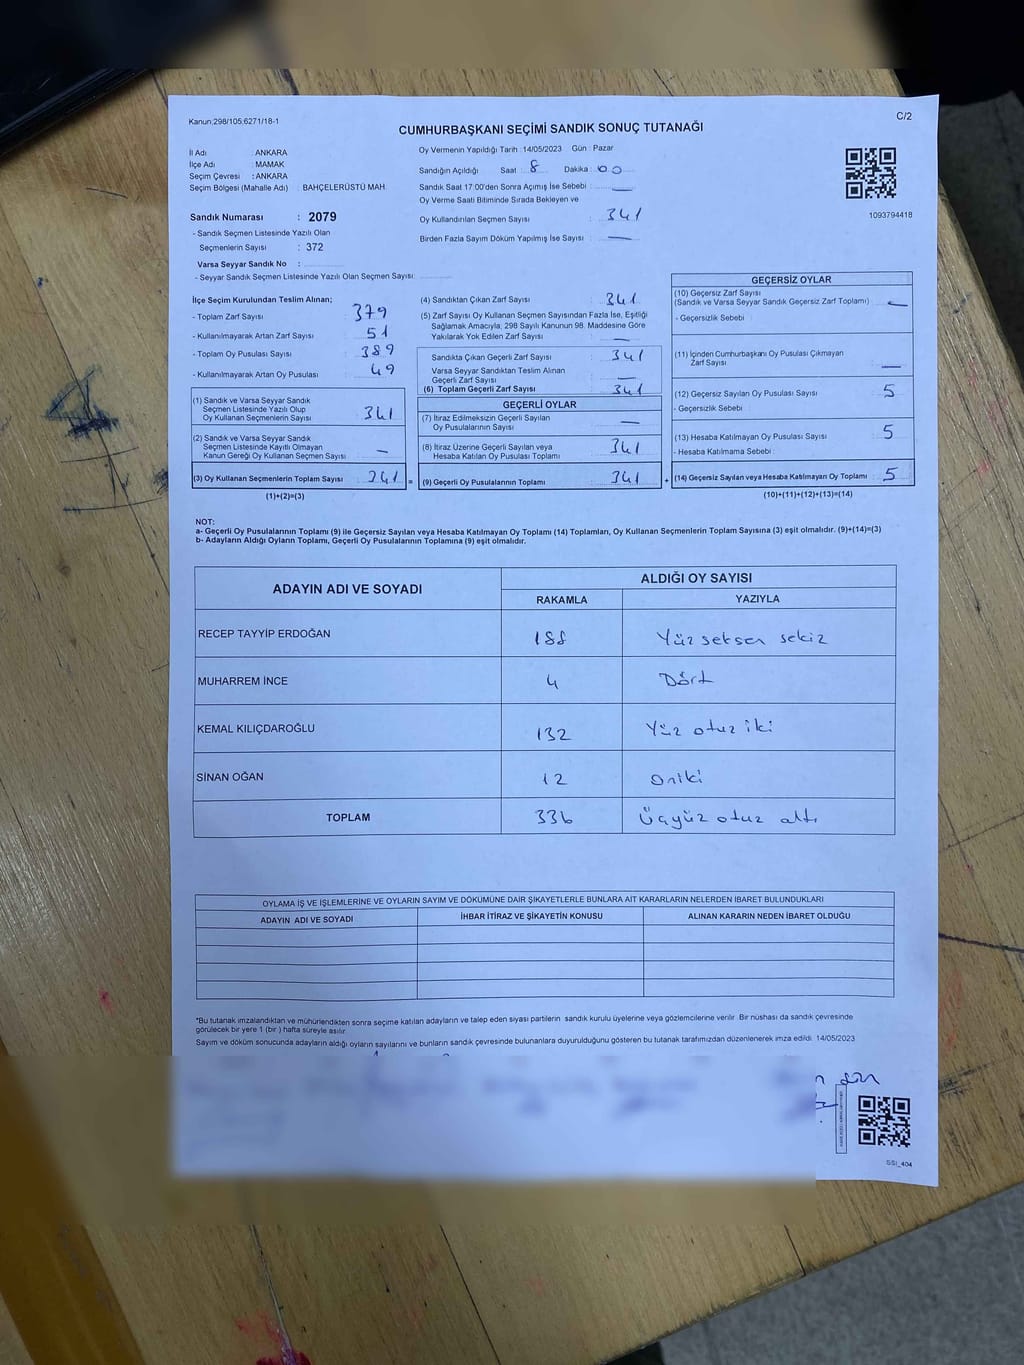 Kanun:298/105,6271/18-1
C/2
CUMHURBAŞKANI SEÇİMİ SANDIK SONUÇ TUTANAĞI
İl Adı : ANKARA
İlçe Adı : MAMAK
Seçim Çevresi : ANKARA
Seçim Bölgesi (Mahalle Adı) : BAHÇELERÜSTÜ MAH.
Sandık Numarası : 2079
- Sandık Seçmen Listesinde Yazılı Olan
Seçmenlerin Sayısı : 372
Varsa Seyyar Sandık No :
- Seyyar Sandık Seçmen Listesinde Yazılı Olan Seçmen Sayısı:
Oy Vermenin Yapıldığı Tarih :14/05/2023 Gün : Pazar
Sandığın Açıldığı Saat : 8 Dakika : 00
Sandık Saat 17:00'den Sonra Açımış İse Sebebi : —
Oy Verme Saati Bitiminde Sırada Bekleyen ve
Oy Kullandırılan Seçmen Sayısı : 341
Birden Fazla Sayım Döküm Yapılmış İse Sayısı : —
1093794418
İlçe Seçim Kurulundan Teslim Alınan;
- Toplam Zarf Sayısı : 379
- Kullanılmayarak Artan Zarf Sayısı : 51
- Toplam Oy Pusulası Sayısı : 389
- Kullanılmayarak Artan Oy Pusulası : 49
(1) Sandık ve Varsa Seyyar Sandık
Seçmen Listesinde Yazılı Olup
Oy Kullanan Seçmenlerin Sayısı : 341
(2) Sandık ve Varsa Seyyar Sandık
Seçmen Listesinde Kayıtlı Olmayan
Kanun Gereği Oy Kullanan Seçmen Sayısı : —
(3) Oy Kullanan Seçmenlerin Toplam Sayısı : 341 =
(1)+(2)=(3)
(4) Sandıktan Çıkan Zarf Sayısı : 341
(5) Zarf Sayısı Oy Kullanan Seçmen Sayısından Fazla İse, Eşitliği
Sağlamak Amacıyla, 298 Sayılı Kanunun 98. Maddesine Göre
Yakılarak Yok Edilen Zarf Sayısı : —
Sandıkta Çıkan Geçerli Zarf Sayısı : 341
Varsa Seyyar Sandıktan Teslim Alınan
Geçerli Zarf Sayısı : —
(6) Toplam Geçerli Zarf Sayısı : 341
GEÇERLİ OYLAR
(7) İtiraz Edilmeksizin Geçerli Sayılan
Oy Pusulalarının Sayısı : —
(8) İtiraz Üzerine Geçerli Sayılan veya
Hesaba Katılan Oy Pusulası Toplamı : 341
(9) Geçerli Oy Pusulalarının Toplamı : 341 +
GEÇERSİZ OYLAR
(10) Geçersiz Zarf Sayısı
(Sandık ve Varsa Seyyar Sandık Geçersiz Zarf Toplamı) : —
- Geçersizlik Sebebi :
(11) İçinden Cumhurbaşkanı Oy Pusulası Çıkmayan
Zarf Sayısı : —
(12) Geçersiz Sayılan Oy Pusulası Sayısı : 5
- Geçersizlik Sebebi :
(13) Hesaba Katılmayan Oy Pusulası Sayısı : 5
- Hesaba Katılmama Sebebi :
(14) Geçersiz Sayılan veya Hesaba Katılmayan Oy Toplamı : 5
(10)+(11)+(12)+(13)=(14)
NOT:
a- Geçerli Oy Pusulalarının Toplamı (9) ile Geçersiz Sayılan veya Hesaba Katılmayan Oy Toplamı (14) Toplamları, Oy Kullanan Seçmenlerin Toplam Sayısına (3) eşit olmalıdır. (9)+(14)=(3)
b- Adayların Aldığı Oyların Toplamı, Geçerli Oy Pusulalarının Toplamına (9) eşit olmalıdır.
ADAYIN ADI VE SOYADI ALDIĞI OY SAYISI
RAKAMLA YAZIYLA
RECEP TAYYİP ERDOĞAN 188 Yüz seksen sekiz
MUHARREM İNCE 4 Dört
KEMAL KILIÇDAROĞLU 132 Yüz otuz iki
SİNAN OĞAN 12 oniki
TOPLAM 336 Üçyüz otuz altı
OYLAMA İŞ VE İŞLEMLERİNE VE OYLARIN SAYIM VE DÖKÜMÜNE DAİR ŞİKAYETLERLE BUNLARA AİT KARARLARIN NELERDEN İBARET BULUNDUKLARI
ADAYIN ADI VE SOYADI İHBAR İTİRAZ VE ŞİKAYETİN KONUSU ALINAN KARARIN NEDEN İBARET OLDUĞU
*Bu tutanak imzalandıktan ve mühürlendikten sonra seçime katılan adayların ve talep eden siyasi partilerin sandık kurulu üyelerine veya gözlemcilerine verilir. Bir nüshası da sandık çevresinde
görülecek bir yere 1 (bir) hafta süreyle asılır.
Sayım ve döküm sonucunda adayların aldığı oyların sayılarını ve bunların sandık çevresinde bulunanlara duyurulduğunu gösteren bu tutanak tarafımızdan düzenlenerek imza edildi. 14/05/2023
SSI_404